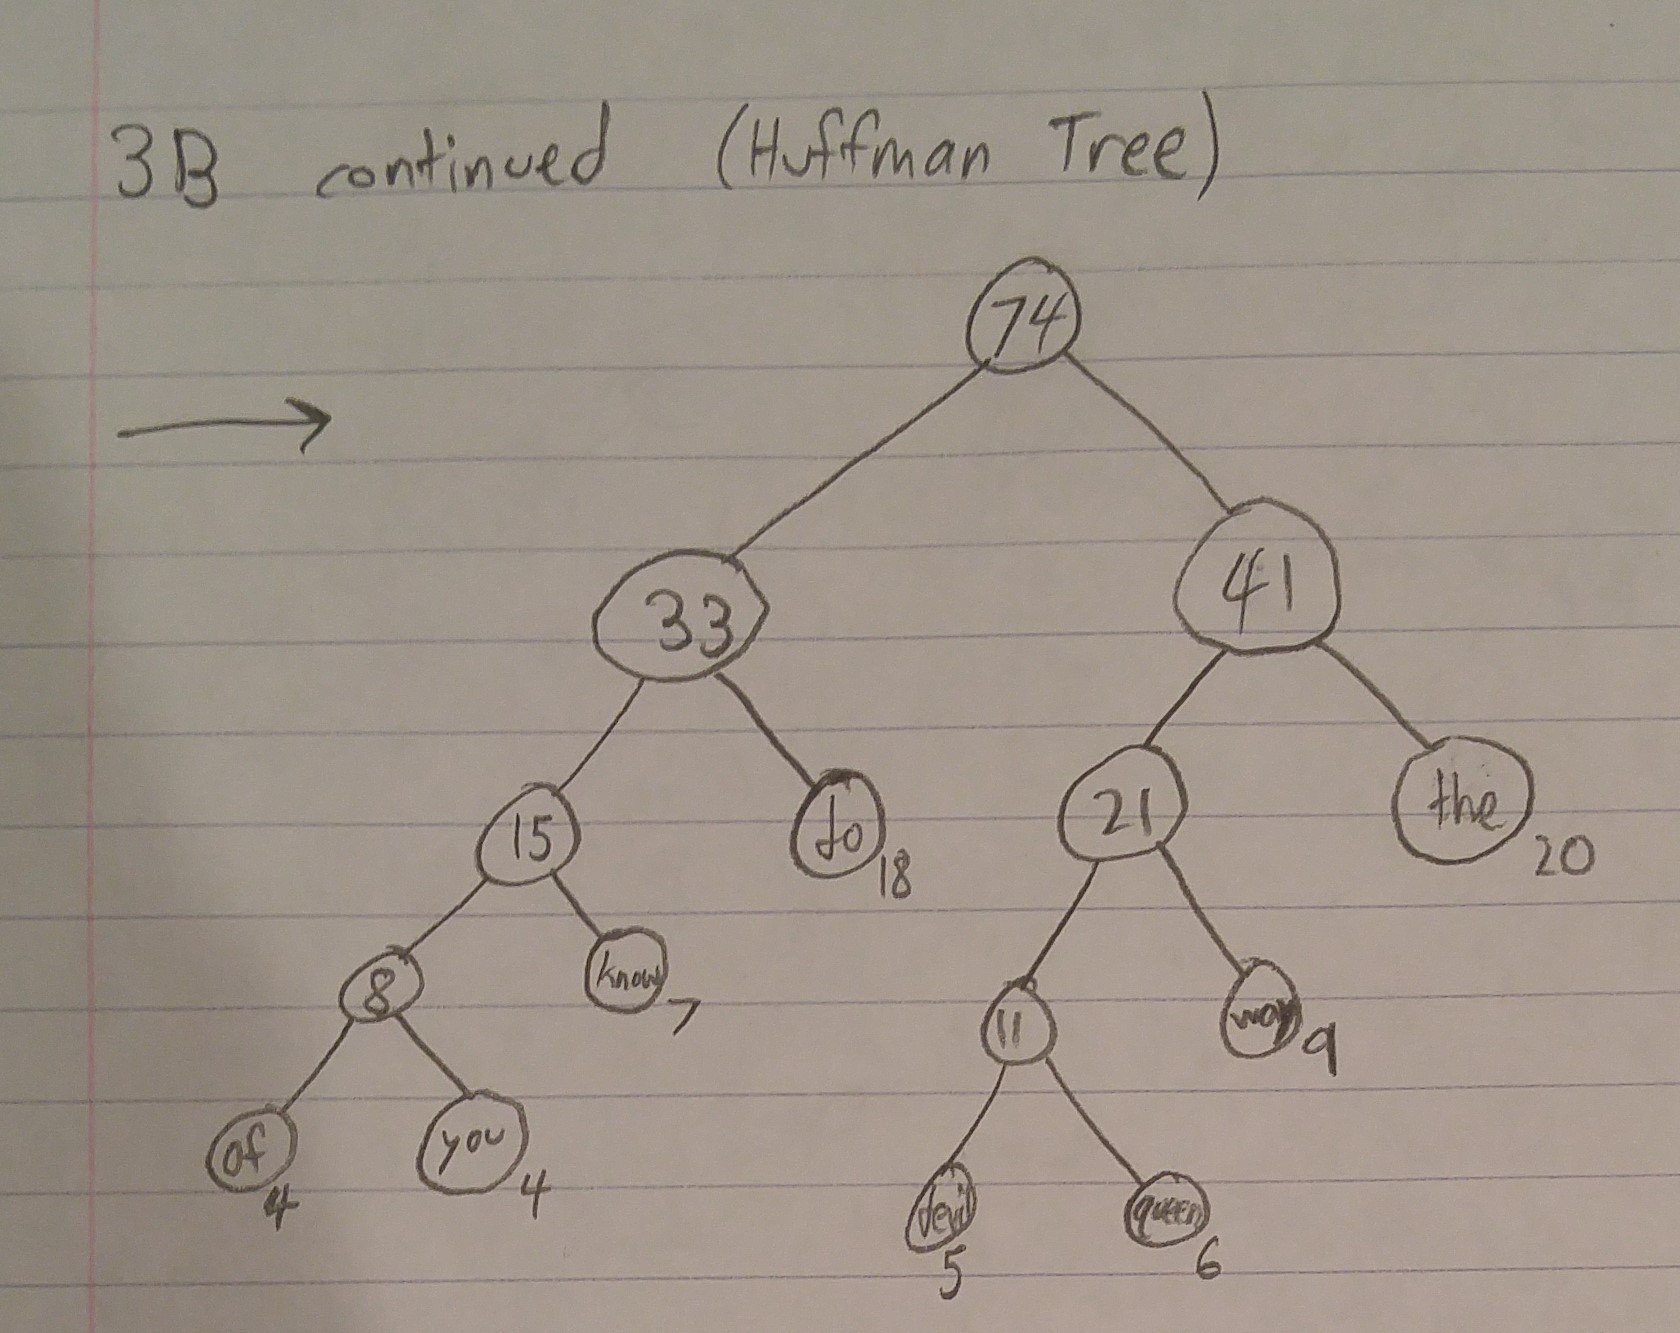 3B continued (Huffman Tree)
74
33 41
15 do 18 21 the 20
8 know 7 11 way 9
of 4 you 4 devil 5 queen 6